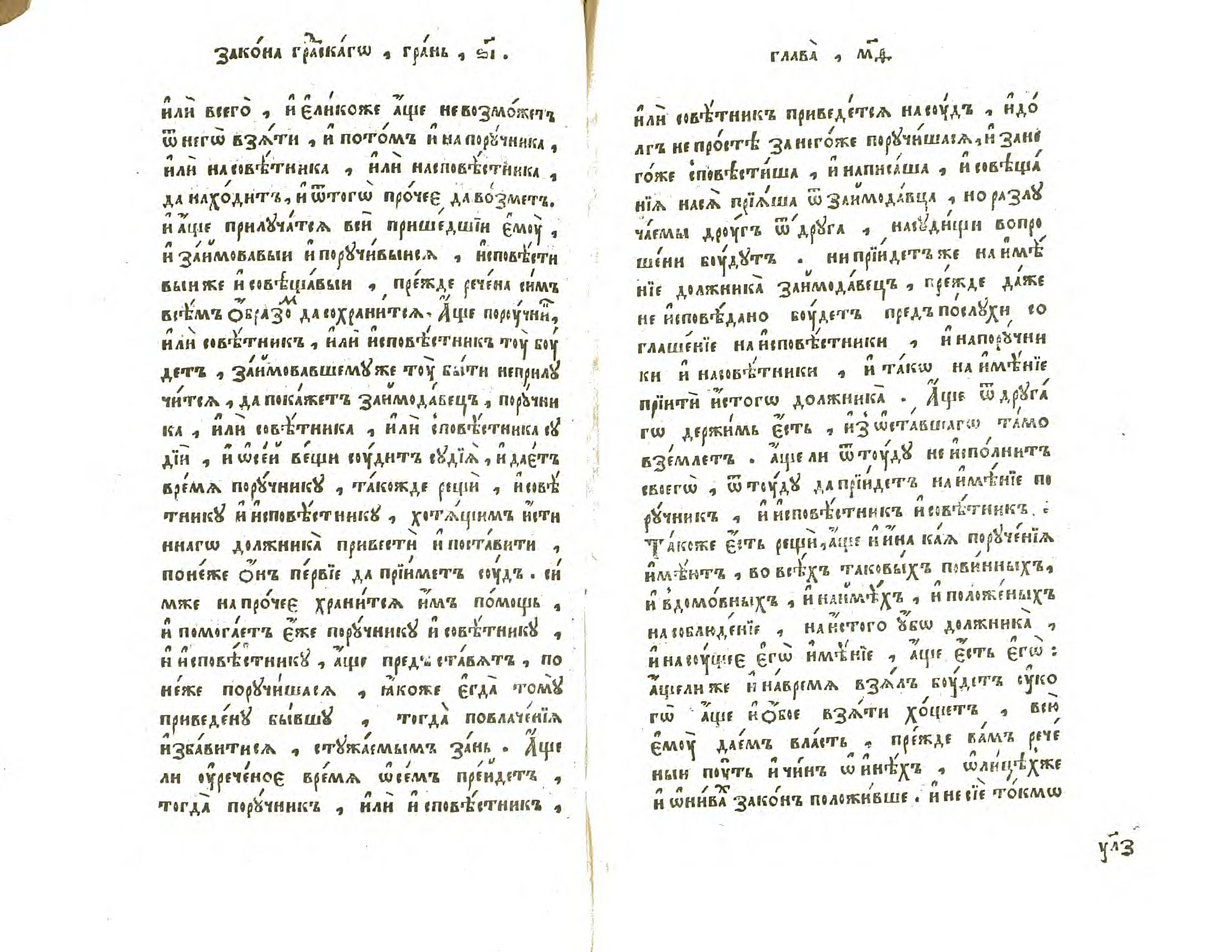 Зако́на гра́дскагѡ , гра́нь , ѕ҃і .
и҆лѝ всего̀ , и҆ є҆ли́коже а҆́ще невозмо́жетъ
ѿ негѡ̀ взѧ́ти , и҆ пото́мъ и҆ на порꙋ́чника ,
и҆лѝ на совѣ́тника , и҆лѝ насповѣ́стника ,
да нахо́дитъ , и҆ ѿтогѡ̀ про́чеє да во́зметъ .
и҆ а҆́ще прилꙋча́тсѧ всѝ прише́дшїи є҆моу̀ ,
и҆ заи́мовавыи и҆ порꙋчи́выисѧ , и҆сповѣ́сти
выиже и҆ совѣща́выи , пре́жде рече́на си́мъ
всѣ́мъ ѻ҆́бразоⷨ да сохрани́тсѧ . А҆́ще порꙋчни́к ,
и҆лѝ совѣ́тникъ , и҆лѝ и҆сповѣ́стникъ тоу̀ бoу́
детъ , заи́мовавшемꙋ же тоу̀ бы́ти неприлꙋ
чи́тсѧ , да пока́жетъ заимода́вецъ , порꙋ́чни
ка , и҆лѝ совѣ́тника , и҆лѝ сповѣ́стника сꙋ
дїѝ , и҆ ѡ҆се́й ве́щи соу́дитъ сꙋдїѧ̀ , и҆ дае́тъ
вре́мѧ порꙋ́чникꙋ , та́кожде рещѝ , и҆ совѣ́
тникꙋ и҆ и҆сповѣ́стникꙋ , хотѧ́щимъ и҆́сти
ннагѡ должника̀ привестѝ и҆ поста́вити ,
поне́же ѻ҆́нъ пе́рвїе да прїи́метъ соу́дъ . си́
мже на про́чеє храни́тсѧ и҆́мъ по́мощь ,
и҆ помога́етъ є҆́же порꙋ́чникꙋ и҆ совѣ́тникꙋ ,
и҆ и҆сповѣ́стникꙋ , а҆́ще предъста́вѧтъ , по
не́же порꙋчи́шасѧ , ꙗ҆́коже є҆гда̀ томꙋ̀
приведе́нꙋ бы́вшꙋ , тогда̀ повлаче́нїѧ
и҆зба́витисѧ , стꙋжа́емымъ за́нь . А҆́ще
ли оу҆рече́ноє вре́мѧ ѡ҆се́мъ пре́йдетъ ,
тогда̀ порꙋ́чникъ , и҆лѝ и҆сповѣ́стникъ ,
глава̀ , м҃д .
и҆лѝ совѣ́тникъ приведе́тсѧ насоу́дъ , и҆ до́
лгъ непро́стѣ за негѡ́же порꙋчи́шасѧ , и҆ зане
го́же сповѣсти́ша , и҆ написа́ша , и҆ совѣща́
нїѧ насѧ̀ прїѧ́ша ѿ заимода́вца , но разлꙋ
ча́емы дрoу́гъ ѿ дрꙋ́га , насꙋди́щи вопро
ше́ни боу́дꙋтъ . ни прїи́детъ же на и҆мѣ́
нїе должника̀ заимода́вецъ , пре́жде да́же
не и҆сповѣ́дано боу́детъ предъ по́слꙋхи со
глаше́нїе на и҆сповѣ́стники , и҆ напорꙋ́чни
ки и҆ насовѣ́тники , и҆ та́кѡ на и҆мѣ́нїе
прїитѝ и҆́стогѡ должника̀ . А҆́ще ѿ дрꙋга́
гѡ держи́мь є҆́сть , и҆з̾ ѡ҆ста́вшагѡ та́мо
взе́млетъ . а҆́ще ли ѿтоу́дꙋ не и҆спо́лнитъ
своегѡ̀ , ѿтоу́дꙋ да прїи́детъ на и҆мѣ́нїе по
рꙋ́чникъ , и҆ и҆сповѣ́стникъ и҆ совѣ́тникъ :
Та́коже є҆́сть рещѝ , а҆́ще и҆ и҆́на ка́ѧ порꙋче́нїѧ
и҆мѣ́ютъ , во всѣ́хъ таковы́хъ пови́нныхъ ,
и҆ вдомо́вныхъ , и҆ наи́мѣхъ , и҆ положе́ныхъ
на соблюде́нїе , на и҆́стого ᲂу҆́бѡ должника̀ ,
и҆ на соу́щеє є҆гѡ̀ и҆мѣ́нїе , а҆́ще є҆́сть є҆гѡ̀ :
а҆́ще ли же и҆ на вре́мѧ взѧ́лъ боу́детъ оу҆ко
гѡ̀ а҆́ще и҆ ѻ҆́бое взѧ́ти хо́щетъ , всю̀
є҆моу̀ дае́мъ вла́сть , пре́жде ва́мъ рече́
ныи поу́ть и҆ чи́нъ ѡ҆ и҆нѣ́хъ , ѡ҆ли́цѣхже
и҆ ѡ҆ни́ваⷯ зако́нъ положи́вше . и҆ не сїѐ то́кмѡ
ул҃з